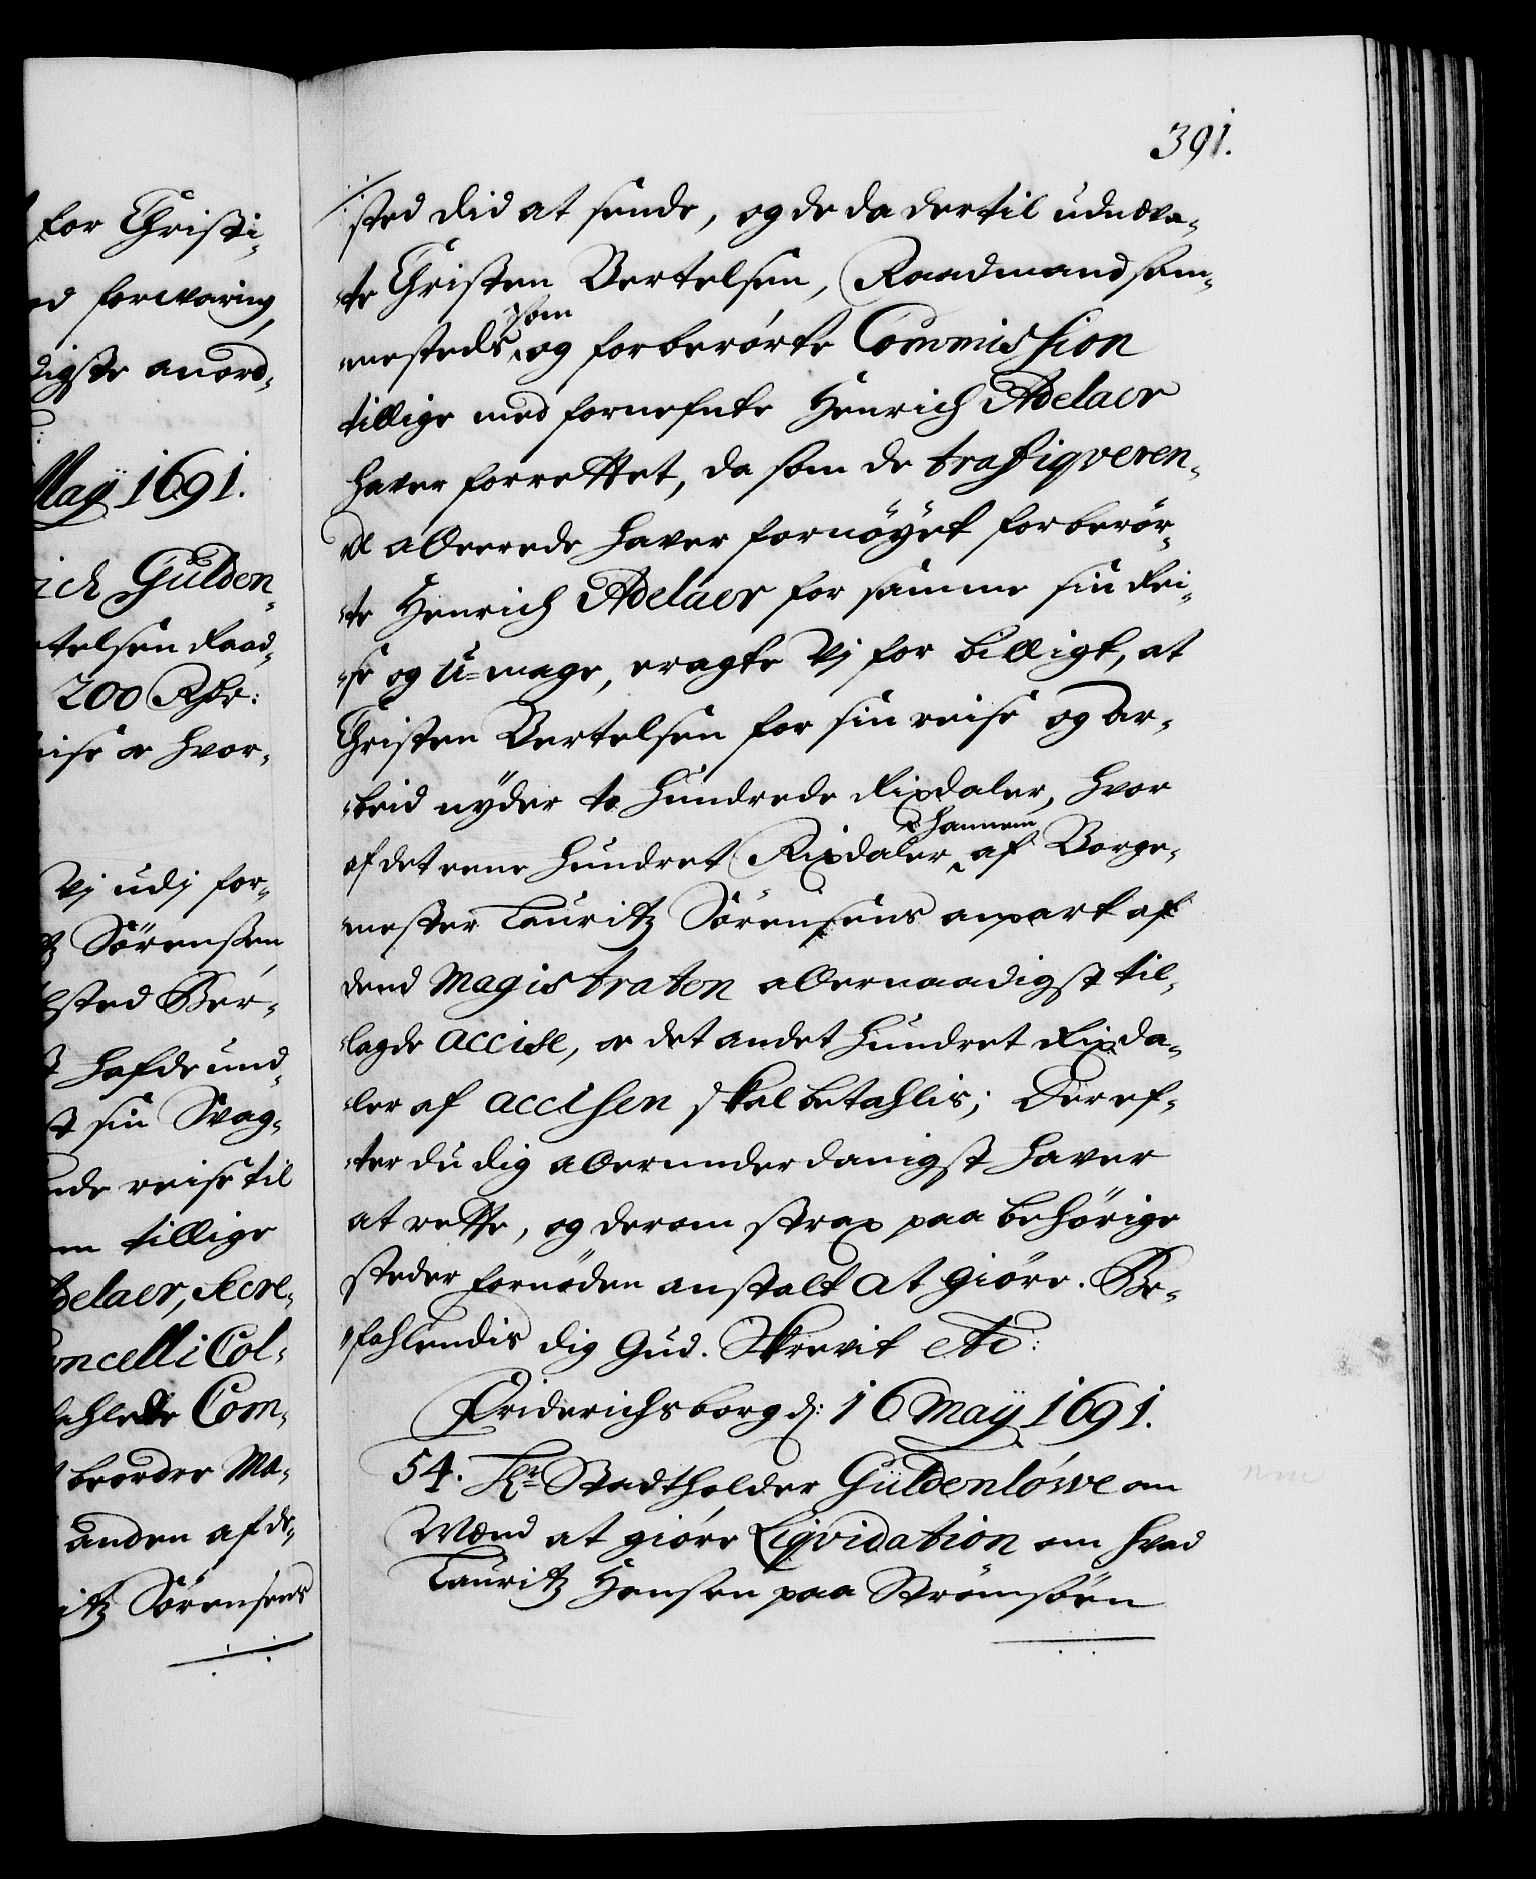 for Christi-
ed forwaring
digste anord-
May 1691.
ich Gulden-
telsen Raad-
200 Rdlr:
eise or hvor-
Vj udj for-
tz Sörensen
sted Ber-
hafde und-
t sin Svag-
nde reise til
m tillige
delaer, Secre-
ancelli Col-
fahlede Com-
beorder Ma-
anden af de-
itz Sörensens
391.
sted did at sende, og de da dertil udnevn-
te Christen Bertelsen, Raadmand sam-
mesteds, som og forberörte Commission
tillige med fornefnte Henrich Adelaer
haver forrettet, da som de trafiqveren-
de allerede haver fornöyet forberör-
te Henrich Adelaer for samme sin Rei-
se og U-mage, eragte Vj for billigt, at
Christen Bertelsen for sin reise og ar-
beid nyder to hundrede Rixdaler, hvor
af det eene hundret Rixdaler hannem af Borge-
mester Lauritz Sörensens anpart af
dend Magistraten allernaadigst til-
lagde accise, oc det andet hundret Rixda-
ler af accisen skal betahlis; Deref-
ter du dig allerunderdanigst haver
at rette, og derom strax paa behörige
steder fornöden anstalt at giöre. Be-
fahlendis dig Gud. Skrevit etc:
Friderichsborg d: 16 May 1691.
54. Hr Stadtholder Güldenlöwe om
Mænd at giöre Liqvidation om hvad
Lauritz Hansen paa Strömsöen